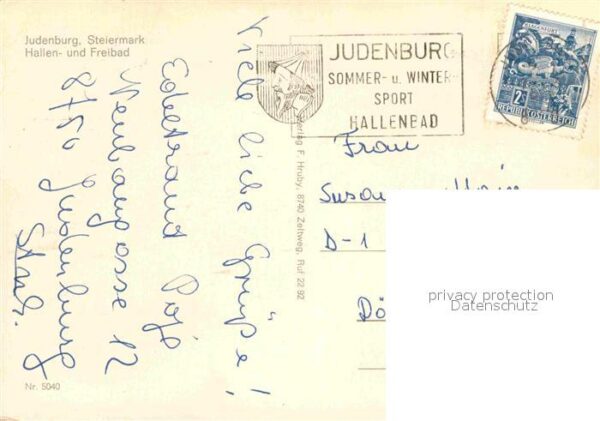 Judenburg, Steiermark
Hallen- und Freibad
Viele liebe Grüße!
Edeltraud
12
8750 Judenburg
Nr. 5040
Verlag F. Hruby, 8740 Zeltweg, Ruf 22 92
JUDENBURG
SOMMER- u. WINTER-
SPORT
HALLENBAD
KLAGENFURT
2
REPUBLIK ÖSTERREICH
Frau
D-1
privacy protection
Datenschutz